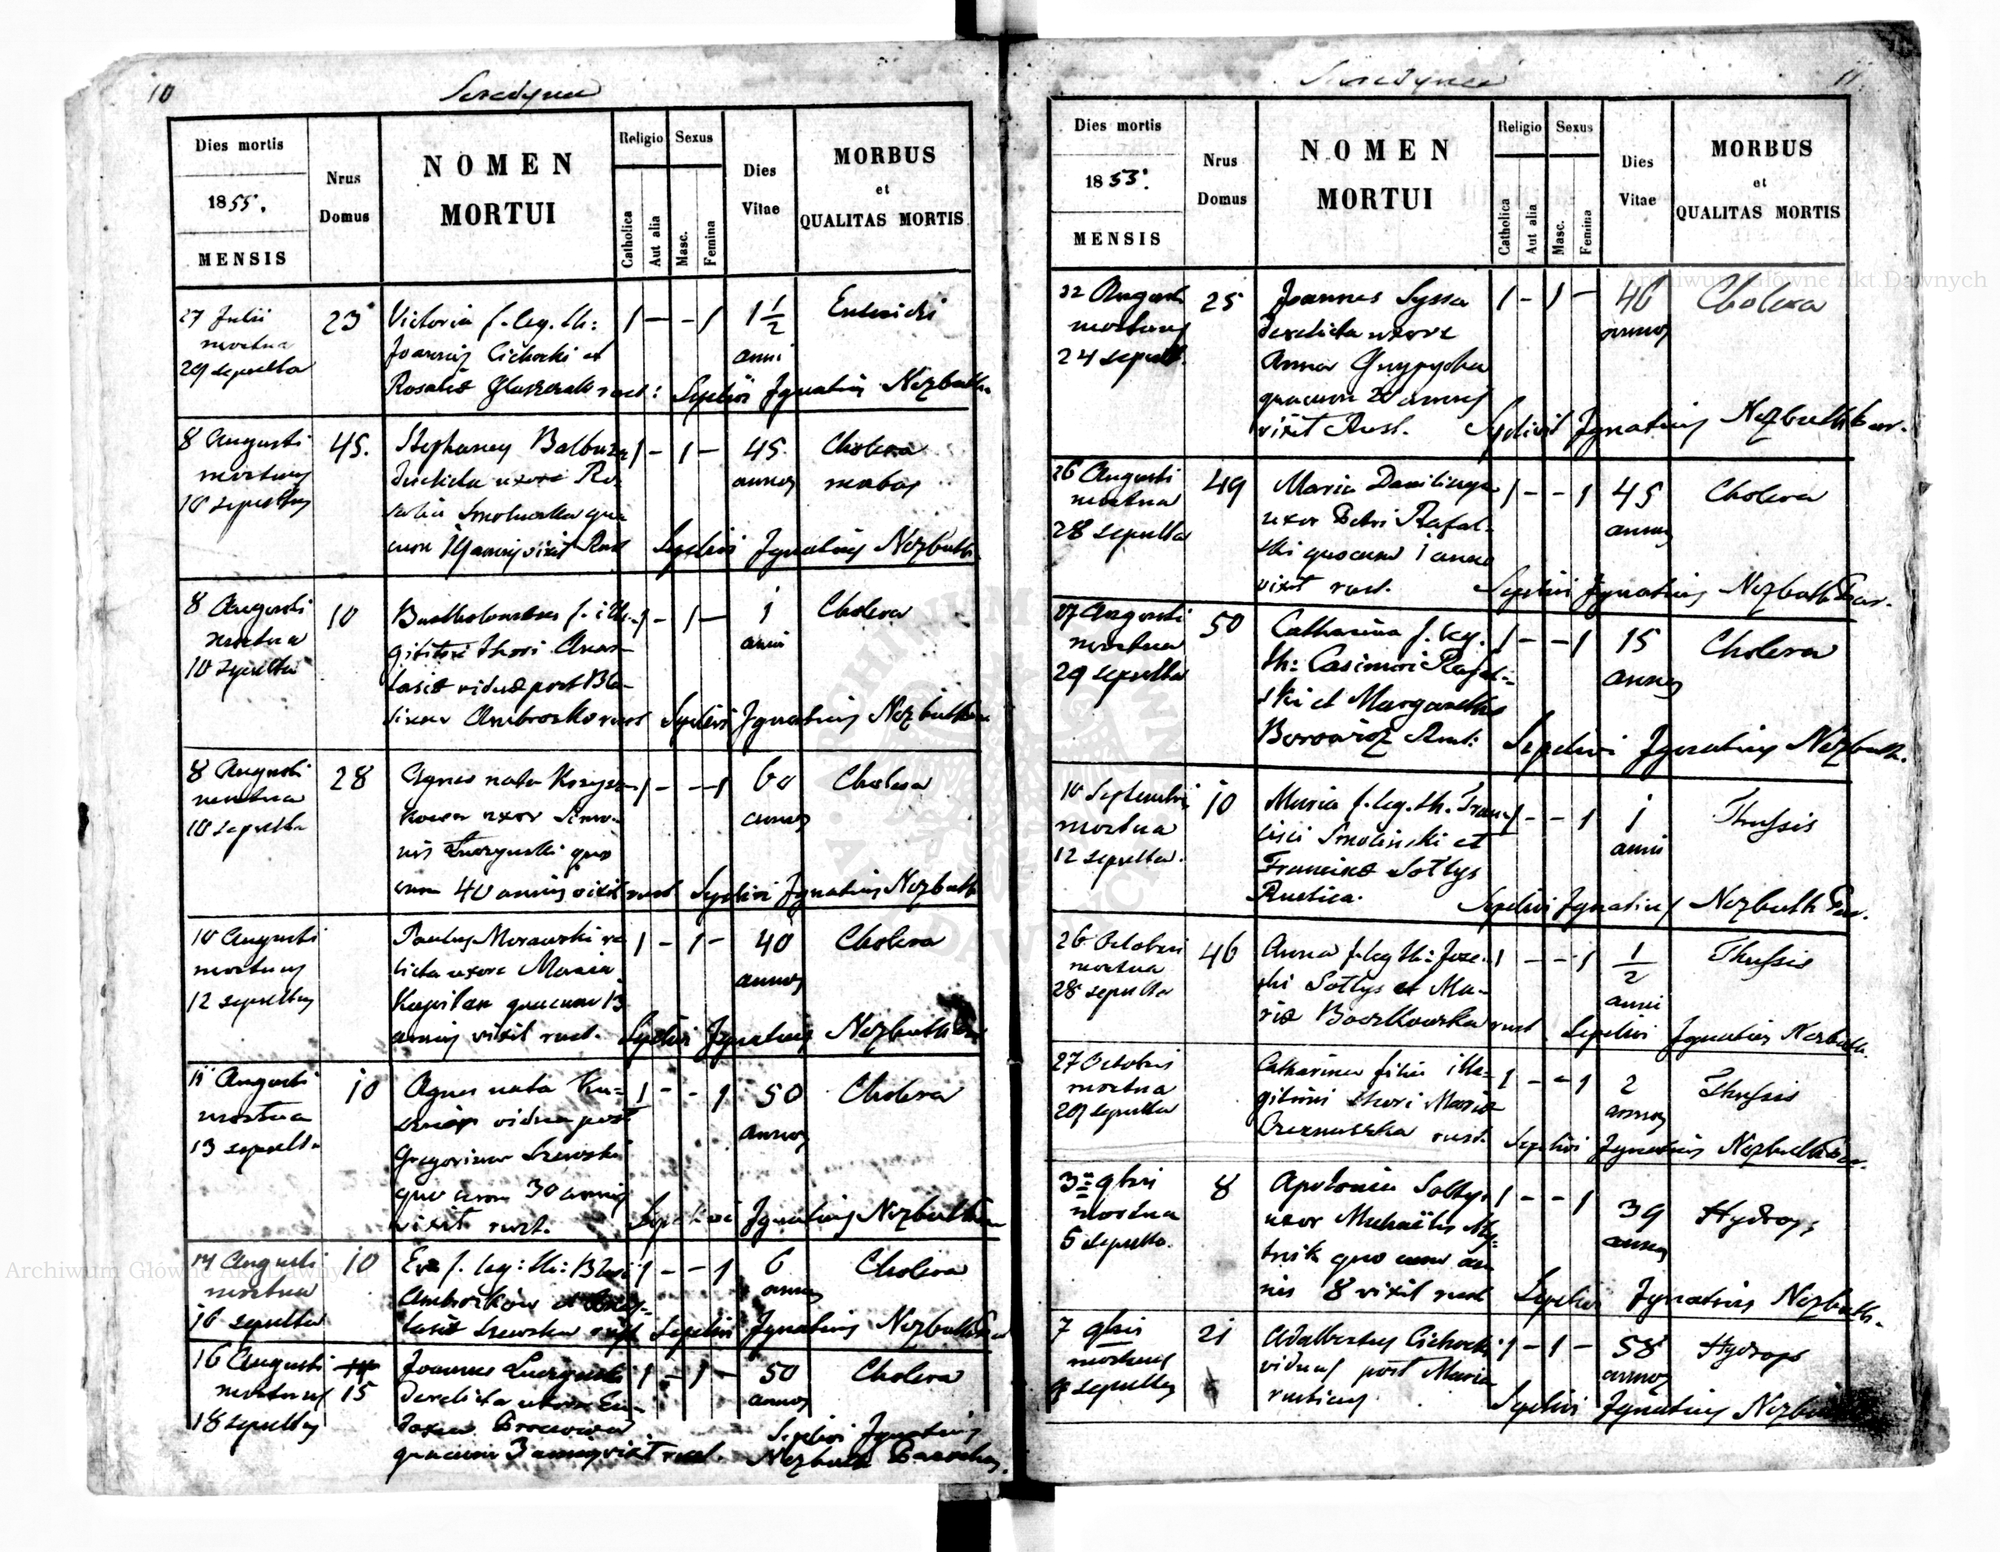 10
Dies mortis
1855.
MENSIS
Nrus
Domus
NOMEN
MORTUI
Religio
Catholica
Aut alia
Sexus
Masc.
Femina
Dies
Vitae
MORBUS
et
QUALITAS MORTIS
27 Julii
mortua
29 sepulta
23
Victoria f. leg. th:
Joannis Cichocki et
Rosaliæ rust:
1 — - 1
1 1/2
anni
Sepelivi Ignatius Nezbuth
8 Augusti
mortuus
10 sepultus
45.
Stephanus Balbuza
derelicta uxore Ro-
salia Smolinska qua
cum annis vixit Rust
1 - 1 —
45
annos
Cholera
Sepelivi Ignatius Nezbuth
8 Augusti
10 sepultus
10
Bartholomeus f. ille-
gitimi thori Anas-
tasiæ viduæ post Bla-
sium Ambrosko rust
1 - 1 —
1
anni
Cholera
Sepelivi Ignatius Nezbuth
8 Augusti
mortua
10 sepulta
28
Agnes nata
uxor Simo-
nis Luczynski quo
cum 40 annis vixit rust
1 - - 1
60
annos
Cholera
Sepelivi Ignatius Nezbuth
10 Augusti
mortuus
12 sepultus
Paulus Morawski re-
licta uxore Maria
Kapitan quacum 13
annis vixit rust.
1 - 1 -
40
annos
Cholera
Sepelivi Ignatius Nezbuth
11 Augusti
mortua
13 sepulta
10
Agnes nata
vidua post
Gregorium Szewski
quo cum 30 annis
vixit rust.
1 - - 1
50
annos
Cholera
Sepelivi Ignatius Nezbuth
14 Augusti
mortua
16 sepulta
10
Eva f. leg: th: Blasii
Ambrosków et Anas-
tasiæ Szewska rust
1 - - 1
6
annos
Cholera
Sepelivi Ignatius Nezbuth
16 Augusti
mortuus
18 sepultus
15
Joannes Luczynski
derelicta uxore Eu-
quacum 3 annis vixit rust.
1 - 1 -
50
annos
Cholera
Sepelivi Ignatius
Nezbuth Parochus.
11
Dies mortis
1855.
MENSIS
Nrus
Domus
NOMEN
MORTUI
Religio
Catholica
Aut alia
Sexus
Masc.
Femina
Dies
Vitae
MORBUS
et
QUALITAS MORTIS
22 Augusti
mortuus
24 sepult.
25
Joannes Syssa
derelicta uxore
Anna
quacum 20 annis
vixit Rust.
1 - 1 -
46
annos
Cholera
Sepelivit Ignatius Nezbuth Par.
26 Augusti
mortua
28 sepulta
49
Maria
uxor Petri Rafal-
ski quocum 1 anno
vixit rust.
1 - - 1
45
annos
Cholera
Sepelivi Ignatius Nezbuth Par.
27 Augusti
mortua
29 sepulta
50
Catharina f. leg.
th: Casimiri Rafal-
ski et Margarethæ
Borowicz Rust:
1 - - 1
15
annos
Cholera
Sepelivi Ignatius Nezbuth.
10 Septembris
mortua
12 sepulta.
10
Maria f. leg. th. Fran-
cisci Smolinski et
Francisæ Sołtys
Rustica.
1 - - 1
1
anni
Thussis
Sepelivi Ignatius Nezbuth Par.
26 Octobris
mortua
28 sepulta
46
Anna f. leg th: Jose-
phi Sołtys et Ma-
riæ Boczkowska rust
1 - - 1
1/2
anni
Thussis
Sepelivi Ignatius Nezbuth.
27 Octobris
mortua
29 sepulta
Catharina filia ille-
gitimi thori Mariæ
rust.
1 - - 1
2
annos
Thussis
Sepelivi Ignatius Nezbuth Par.
3 9bris
mortua
5 sepulta.
8
Apolonia Sołtys
uxor Michaëlis
quo cum an-
nis 8 vixit rust
1 - - 1
39
annos
Hydrops
Sepelivi Ignatius Nezbuth.
7 9bris
mortuus
9 sepultus
21
Adalbertus Cichocki
viduus post Maria
rusticus
1 - 1 -
58
annos
Hydrops
Sepelivi Ignatius
Archiwum Główne Akt Dawnych
Archiwum Główne Akt Dawnych